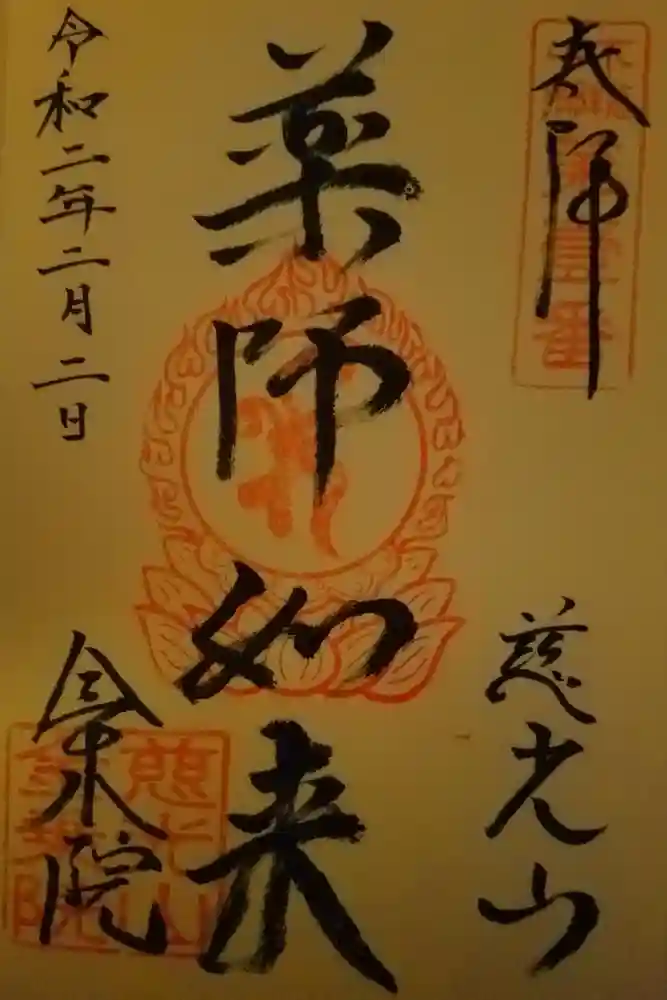 奉拝
慈光山
薬師如来
令和二年二月二日
金乗院
慈光山
金乗院